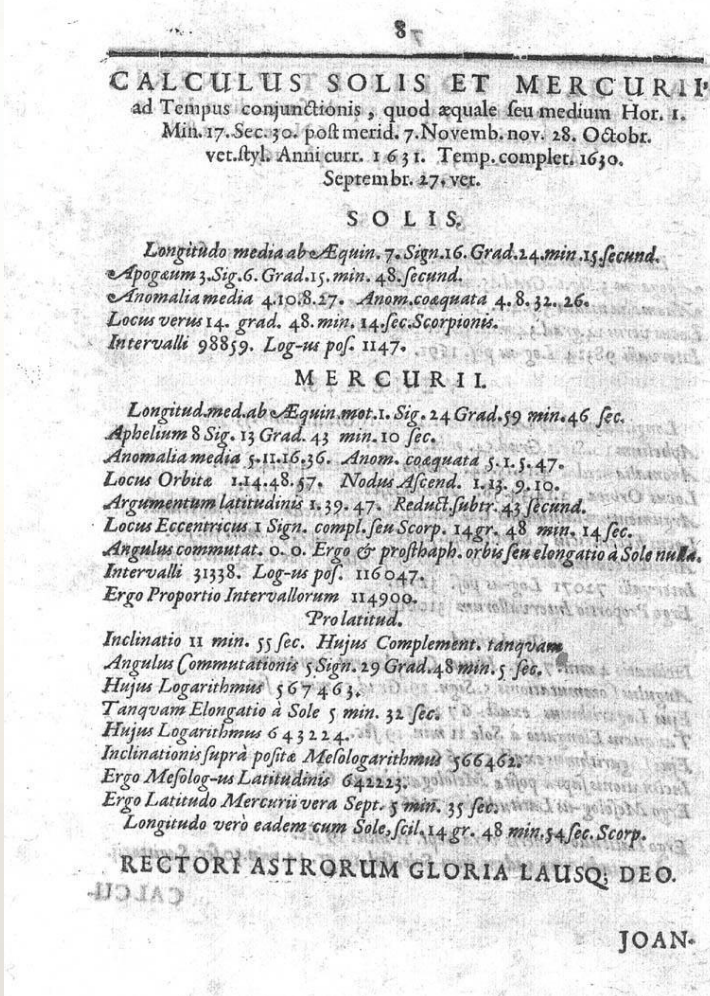 8
CALCULUS SOLIS ET MERCURII
ad Tempus conjunctionis, quod æquale ſeu medium Hor. 1.
Min. 17. Sec. 30. poſt merid. 7. Novemb. nov. 28. Octobr.
vet. ſtyl. Anni curr. 1631. Temp. complet. 1630.
Septembr. 27. vet.
SOLIS.
Longitudo media ab Æquin. 7. Sign. 16. Grad. 24. min. 15. ſecund.
Apogæum 3. Sig. 6. Grad. 15. min. 48. ſecund.
Anomalia media 4. 10. 8. 27. Anom. coæquata 4. 8. 32. 26.
Locus verus 14. grad. 48. min. 14. ſec. Scorpionis.
Intervalli 98859. Log-us poſ. 1147.
MERCURII.
Longitud. med. ab Æquin. mot. 1. Sig. 24 Grad. 59 min. 46 ſec.
Aphelium 8 Sig. 13 Grad. 43 min. 10 ſec.
Anomalia media 5. 11. 16. 36. Anom. coæquata 5. 1. 5. 47.
Locus Orbitæ 1. 14. 48. 57. Nodus Aſcend. 1. 13. 9. 10.
Argumentum latitudinis 1. 39. 47. Reduct. ſubtr. 43 ſecund.
Locus Eccentricus 1 Sign. compl. ſeu Scorp. 14 gr. 48 min. 14 ſec.
Angulus commutat. 0. 0. Ergo & proſthaph. orbis ſeu elongatio à Sole nulla.
Intervalli 31338. Log-us poſ. 116047.
Ergo Proportio Intervallorum 114900.
Pro latitud.
Inclinatio 11 min. 55 ſec. Hujus Complement. tanqvam
Angulus Commutationis 5 Sign. 29 Grad. 48 min. 5 ſec.
Hujus Logarithmus 567463.
Tanqvam Elongatio à Sole 5 min. 32 ſec.
Hujus Logarithmus 643224.
Inclinationis ſuprà poſitæ Meſologarithmus 566462.
Ergo Meſolog-us Latitudinis 642223.
Ergo Latitudo Mercurii vera Sept. 5 min. 35 ſec.
Longitudo verò eadem cum Sole, ſcil. 14 gr. 48 min. 54 ſec. Scorp.
RECTORI ASTRORUM GLORIA LAUSQ; DEO.
JOAN-